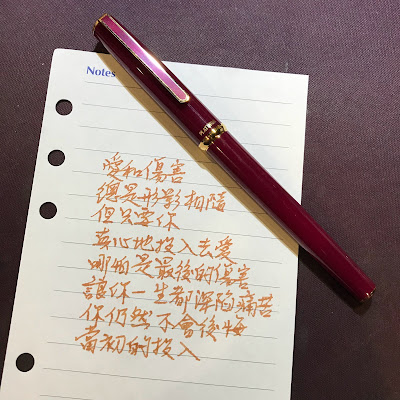 Notes
愛和傷害
總是形影相隨
但只要你
真心地投入去愛
哪怕是最後的傷害
讓你一生都深陷痛苦
你仍然不會後悔
當初的投入